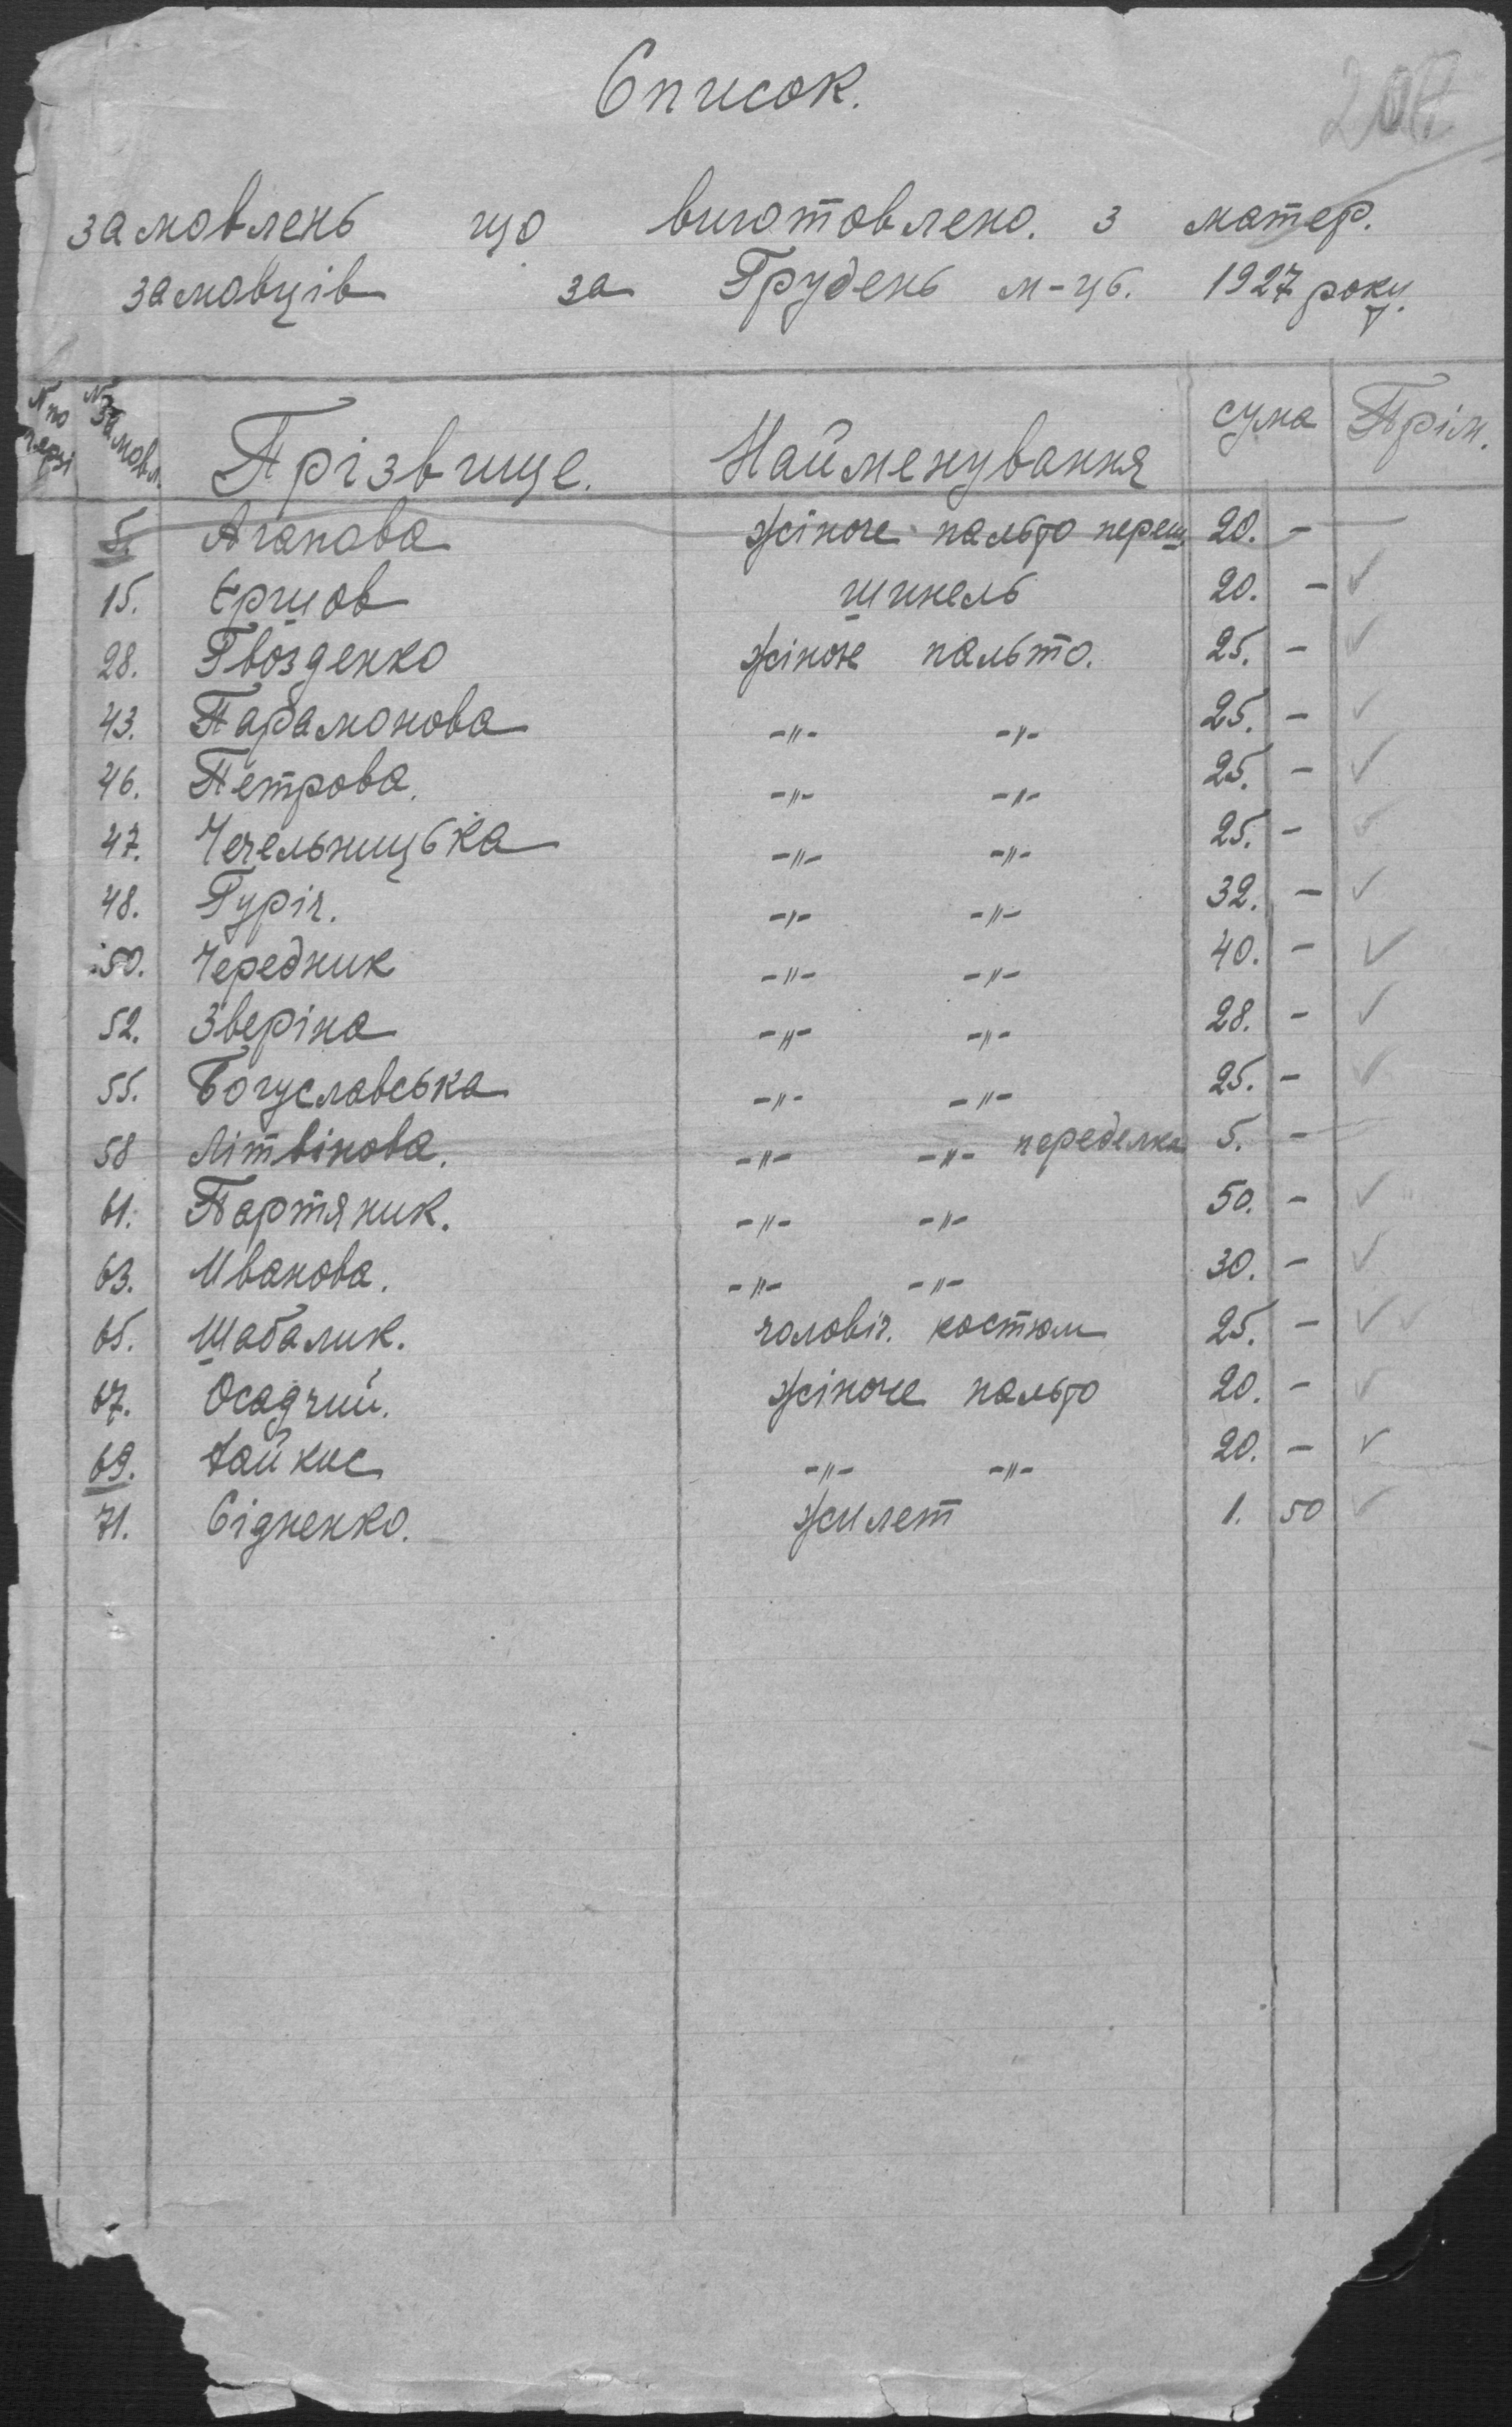 Список.
208
замовлень що виготовлено. з матер.
замовців за Грудень м-ць. 1927 року.
N по черзі N замовл. Прізвище. Найменування сума Прім.
5. Агапова жіноче пальто переш. 20. -
15. Єршов шинель 20. - ✓
28. Гвозденко жіноче пальто. 25. - ✓
43. Парамонова -"- -"- 25. - ✓
46. Петрова. -"- -"- 25. - ✓
47. Чечельницька -"- -"- 25. - ✓
48. Гуріч. -"- -"- 32. - ✓
50. Чередник -"- -"- 40. - ✓
52. Зверіна -"- -"- 28. - ✓
55. Богуславська -"- -"- 25. - ✓
58 Літвінова. -"- -"- переделка 5. -
61. Партяник. -"- -"- 50. - ✓
63. Иванова. -"- -"- 30. - ✓
65. Шабалик. чоловіч. костюм 25. - ✓
67. Осадчий. жіноче пальто 20. - ✓
69. Хайкис -"- -"- 20. - ✓
71. Сідненко. жилет 1. 50 ✓